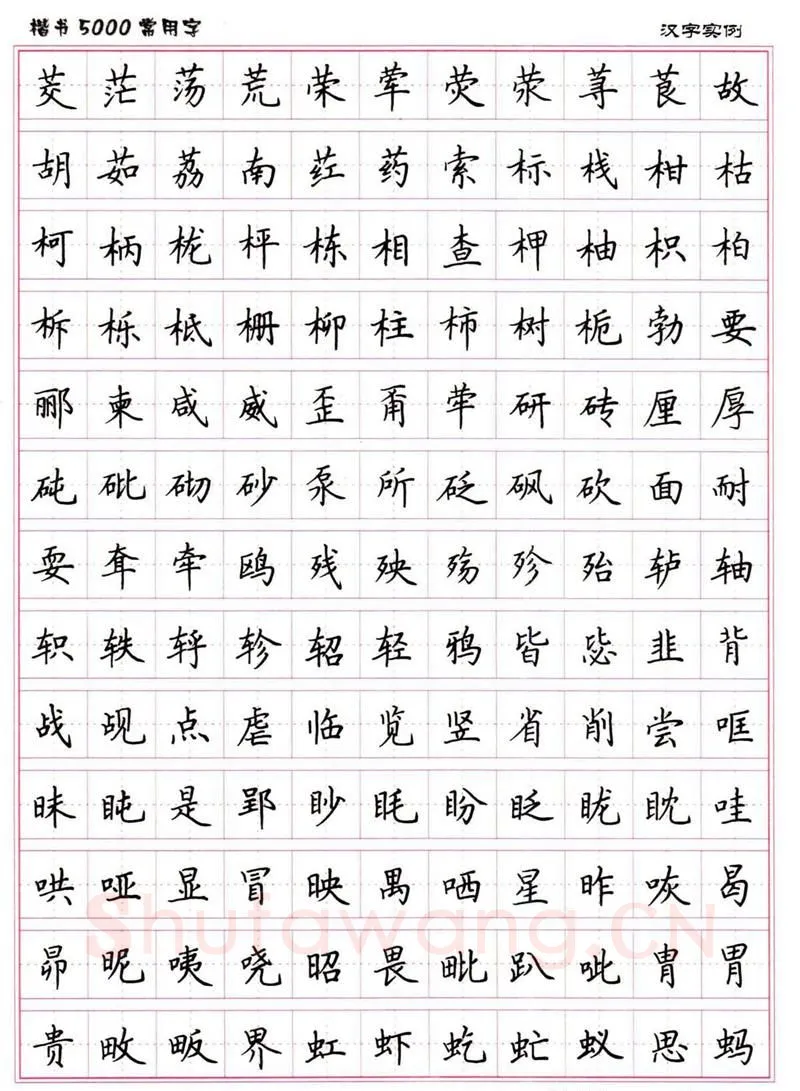 楷书5000常用字 汉字实例
茭茫荡荒荣荤荧荥荨茛故
胡茹荔南荭药索标栈柑枯
柯柄栊枰栋相查柙柚枳柏
柝栎柢栅柳柱柿树栀勃要
郦柬咸威歪甭荜研砖厘厚
砘砒砌砂泵所砭砜砍面耐
耍耷牵鸥残殃殇殄殆轳轴
轵轶轷轸轺轻鸦皆毖韭背
战觇点虐临览竖省削尝哐
昧盹是郢眇眊盼眨昽眈哇
哄哑显冒映禺哂星昨咴曷
昴昵咦哓昭畏毗趴呲胄胃
贵畋畈界虹虾虼虻蚁思蚂
Shufawang.CN